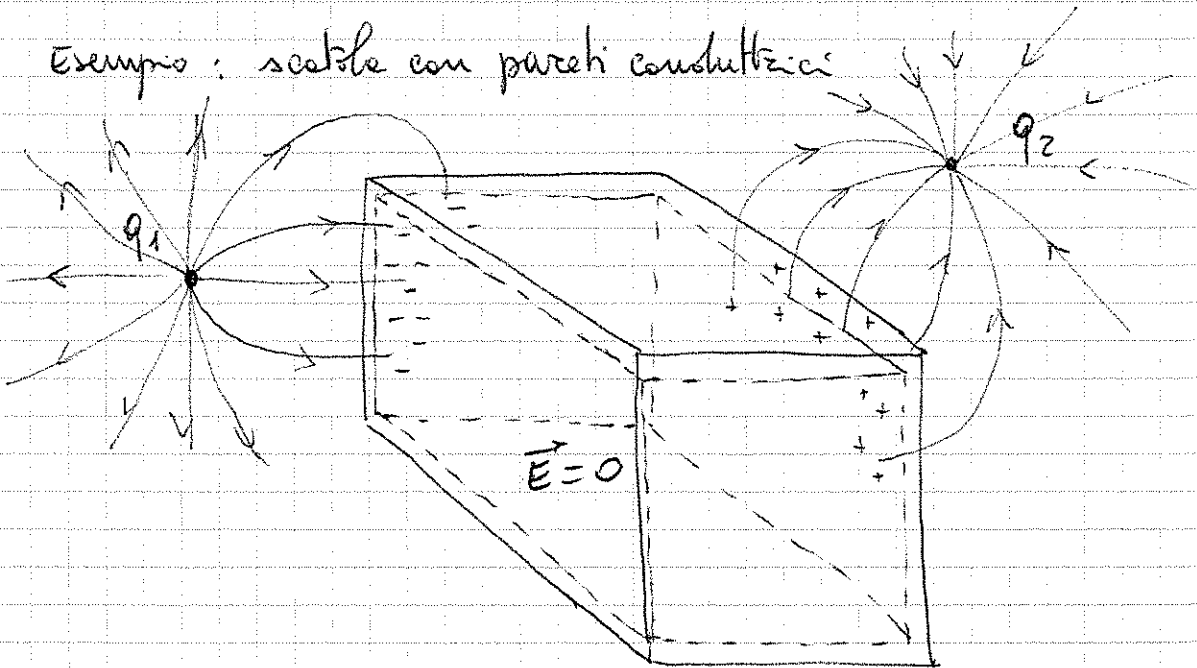 Esempio : scatola con pareti conduttrici
q₁
q₂
E⃗ = 0